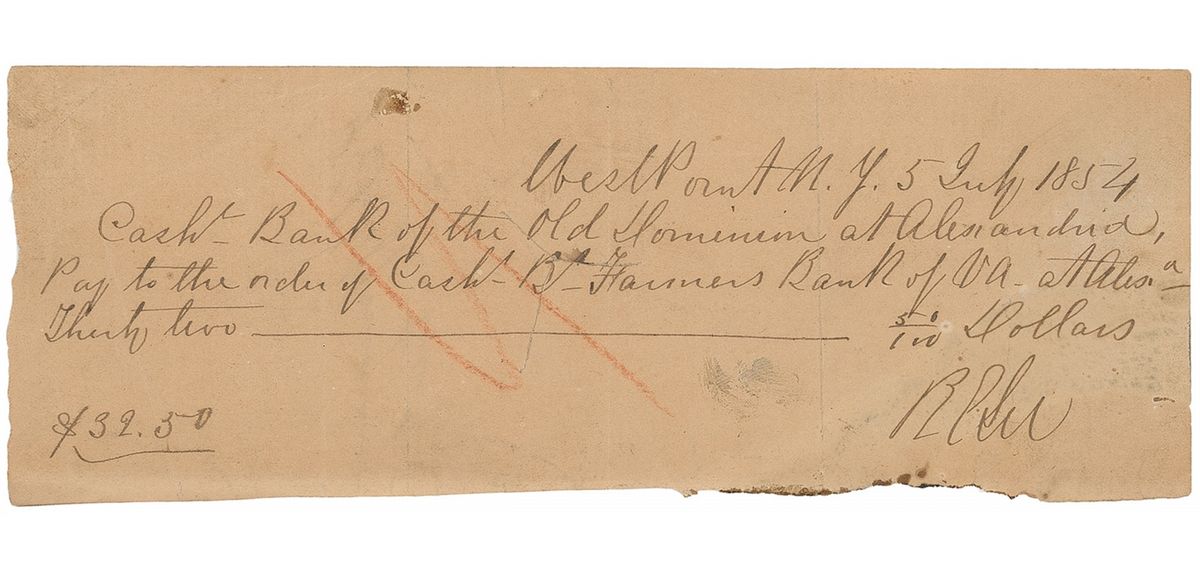 West Point N. Y. 5 July 1854
Cash^r Bank of the Old Dominion at Alexandria,
Pay to the order of Cash^r B^r Farmers Bank of VA. at Alex^a
Thirty two 50/100 Dollars
$32.50
R E Lee